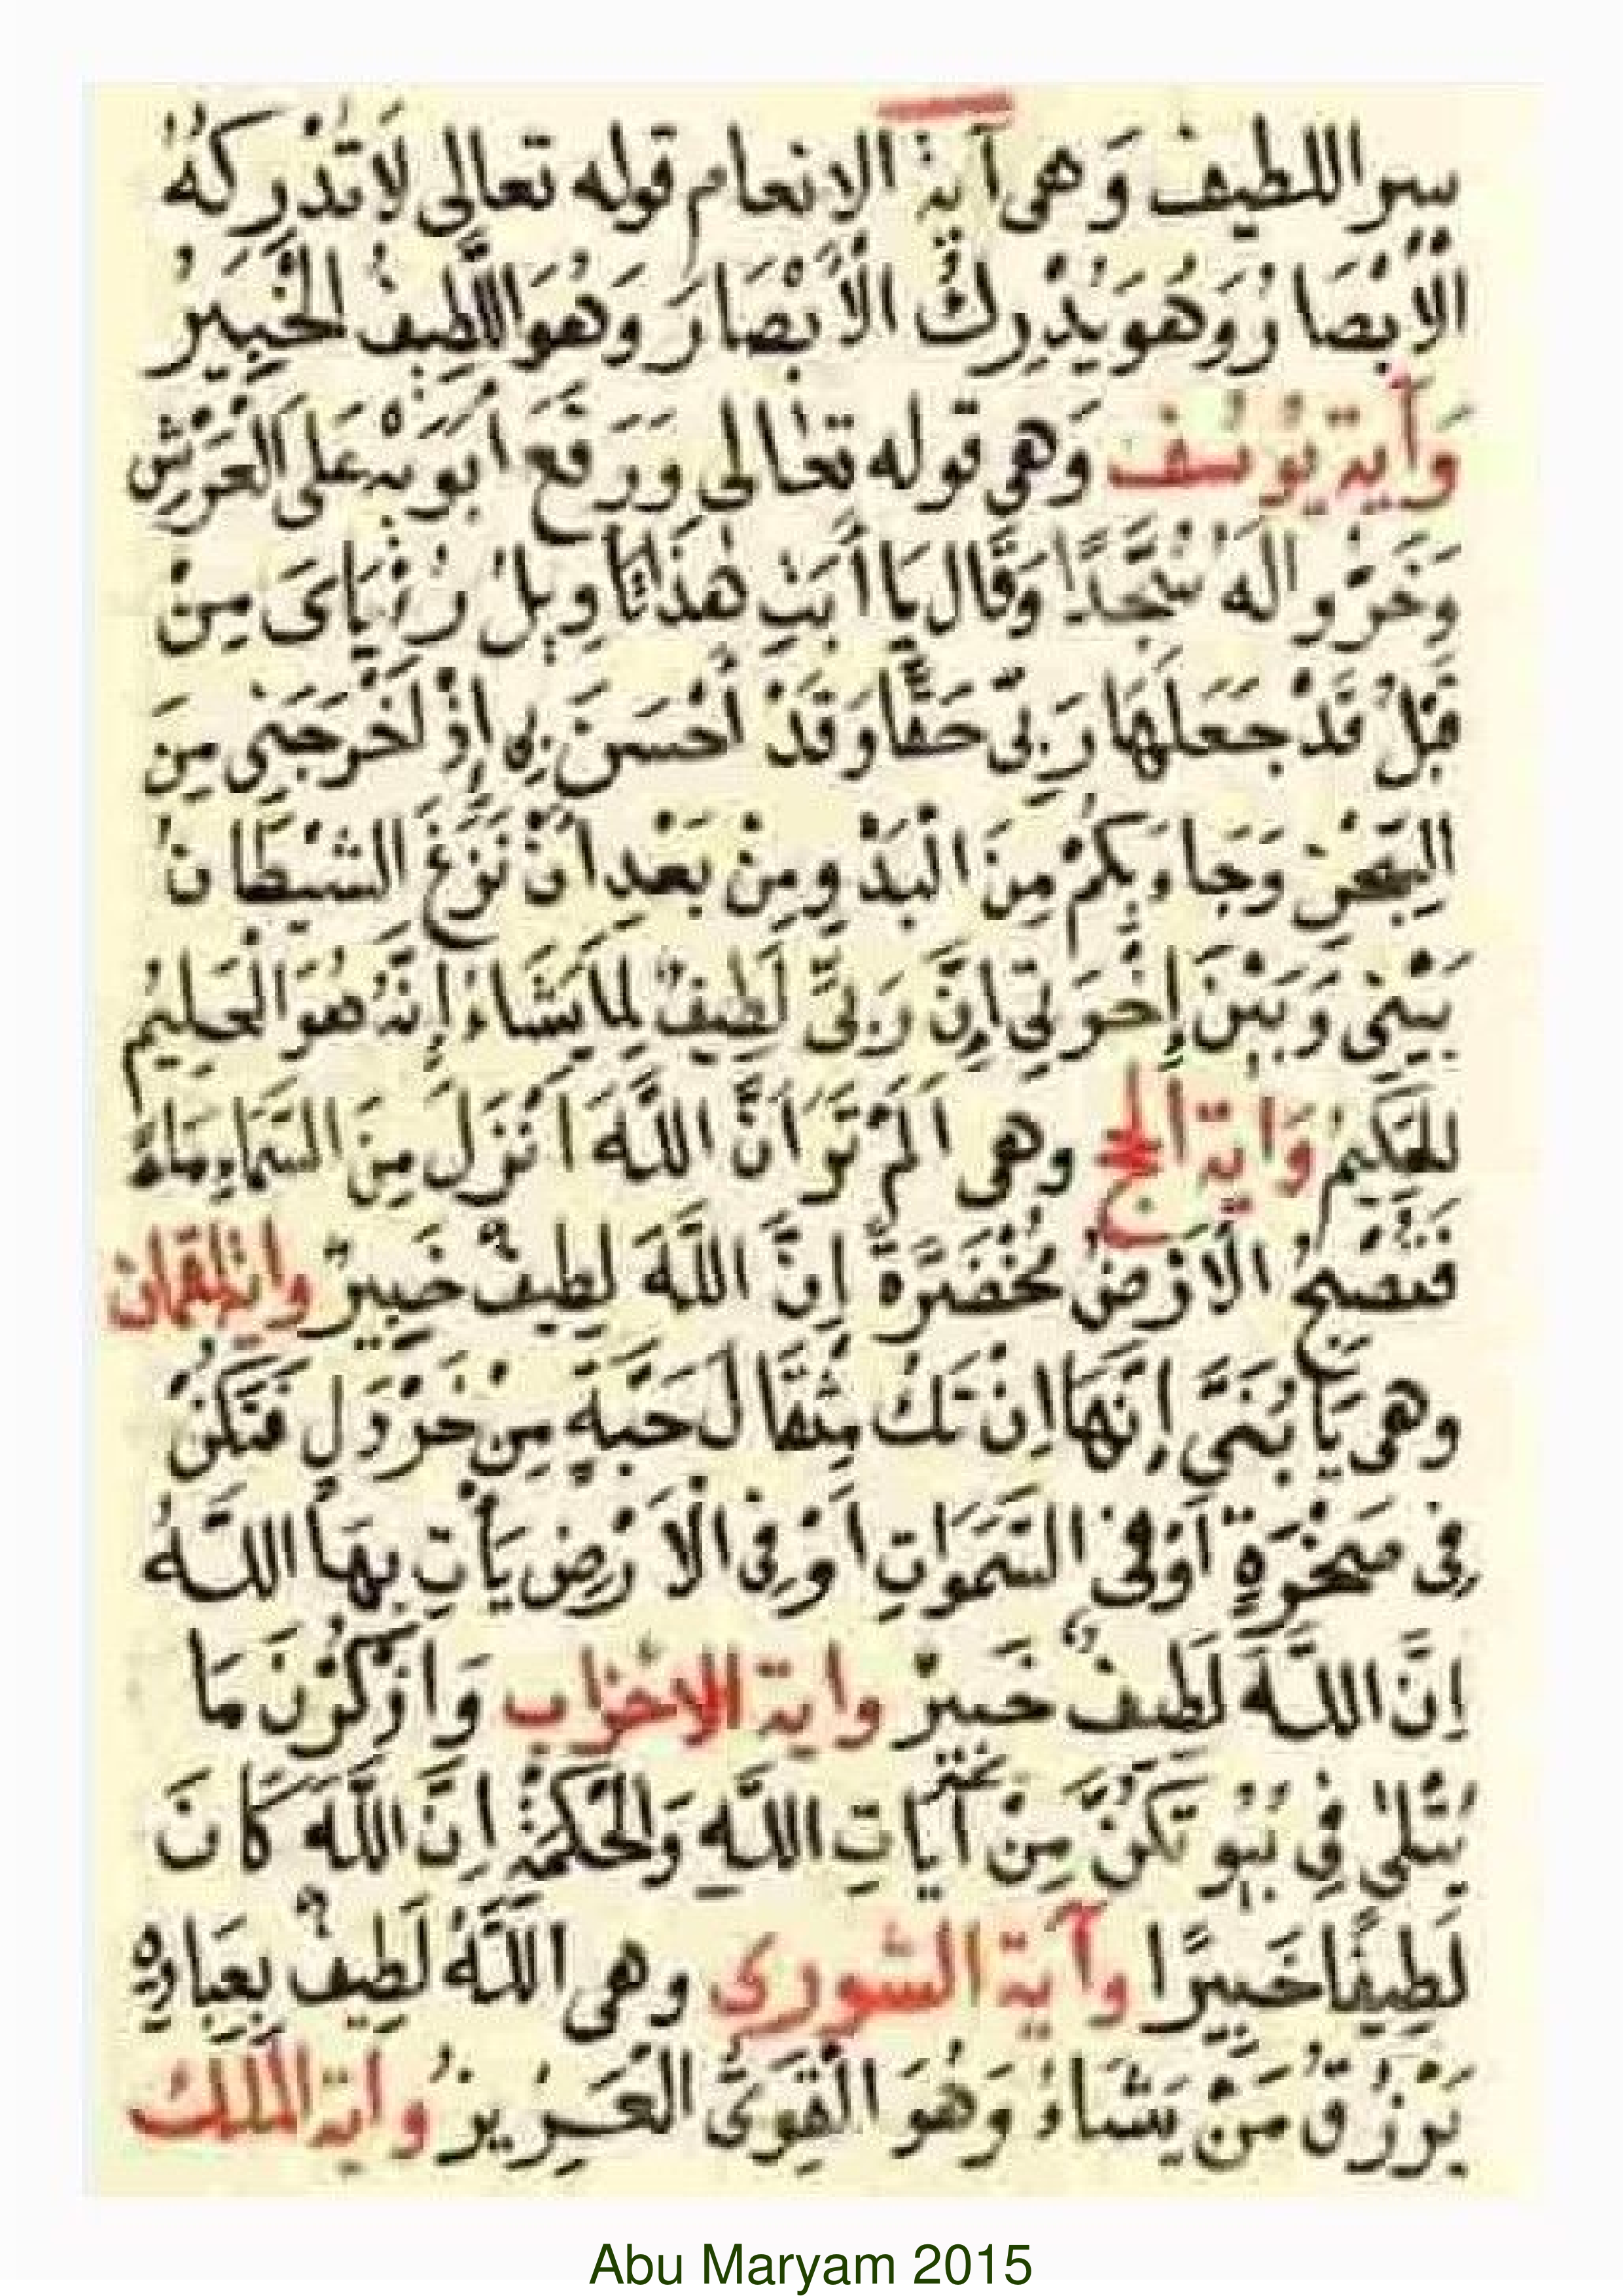 سر اللطيف وَهى آية الانعام قوله تعالى لَاتُدْرِكُهُ
الْاَبْصَارُ وَهُوَ يُدْرِكُ الْاَبْصَارَ وَهُوَ اللَّطِيفُ الْخَبِيرُ
وَآية يُوسُف وَهى قوله تعالى وَرَفَعَ اَبَوَيْهِ عَلَى الْعَرْشِ
وَخَرُّوا لَهُ سُجَّدًا وَقَالَ يَا أَبَتِ هٰذَا تَاوِيلُ رُؤْيَاىَ مِنْ
قَبْلُ قَدْ جَعَلَهَا رَبِّى حَقًّا وَقَدْ أَحْسَنَ بِى اِذْ أَخْرَجَنِى مِنَ
السِّجْنِ وَجَاءَ بِكُمْ مِنَ الْبَدْوِ مِنْ بَعْدِ اَنْ نَزَغَ الشَّيْطَانُ
بَيْنِى وَبَيْنَ إِخْوَتِى اِنَّ رَبِّى لَطِيفٌ لِمَا يَشَاءُ اِنَّهُ هُوَ الْعَلِيمُ
الْحَكِيمُ وَاية الحج وهى اَلَمْ تَرَ اَنَّ اللَّهَ اَنْزَلَ مِنَ السَّمَاءِ مَاءً
فَتُصْبِحُ الْاَرْضُ مُخْضَرَّةً اِنَّ اللَّهَ لَطِيفٌ خَبِيرٌ واية لقمان
وهى يَا بُنَىَّ اِنَّهَا اِنْ تَكُ مِثْقَالَ حَبَّةٍ مِنْ خَرْدَلٍ فَتَكُنْ
فِى صَخْرَةٍ اَوْ فِى السَّمٰوَاتِ اَوْ فِى الْاَرْضِ يَأْتِ بِهَا اللَّهُ
اِنَّ اللَّهَ لَطِيفٌ خَبِيرٌ واية الاحزاب وَاذْكُرْنَ مَا
يُتْلَى فِى بُيُوتِكُنَّ مِنْ آيَاتِ اللَّهِ وَالْحِكْمَةِ اِنَّ اللَّهَ كَانَ
لَطِيفًا خَبِيرًا وآية الشورى وهى اَللَّهُ لَطِيفٌ بِعِبَادِهِ
يَرْزُقُ مَنْ يَشَاءُ وَهُوَ الْقَوِىُّ الْعَزِيزُ واية الملك
Abu Maryam 2015